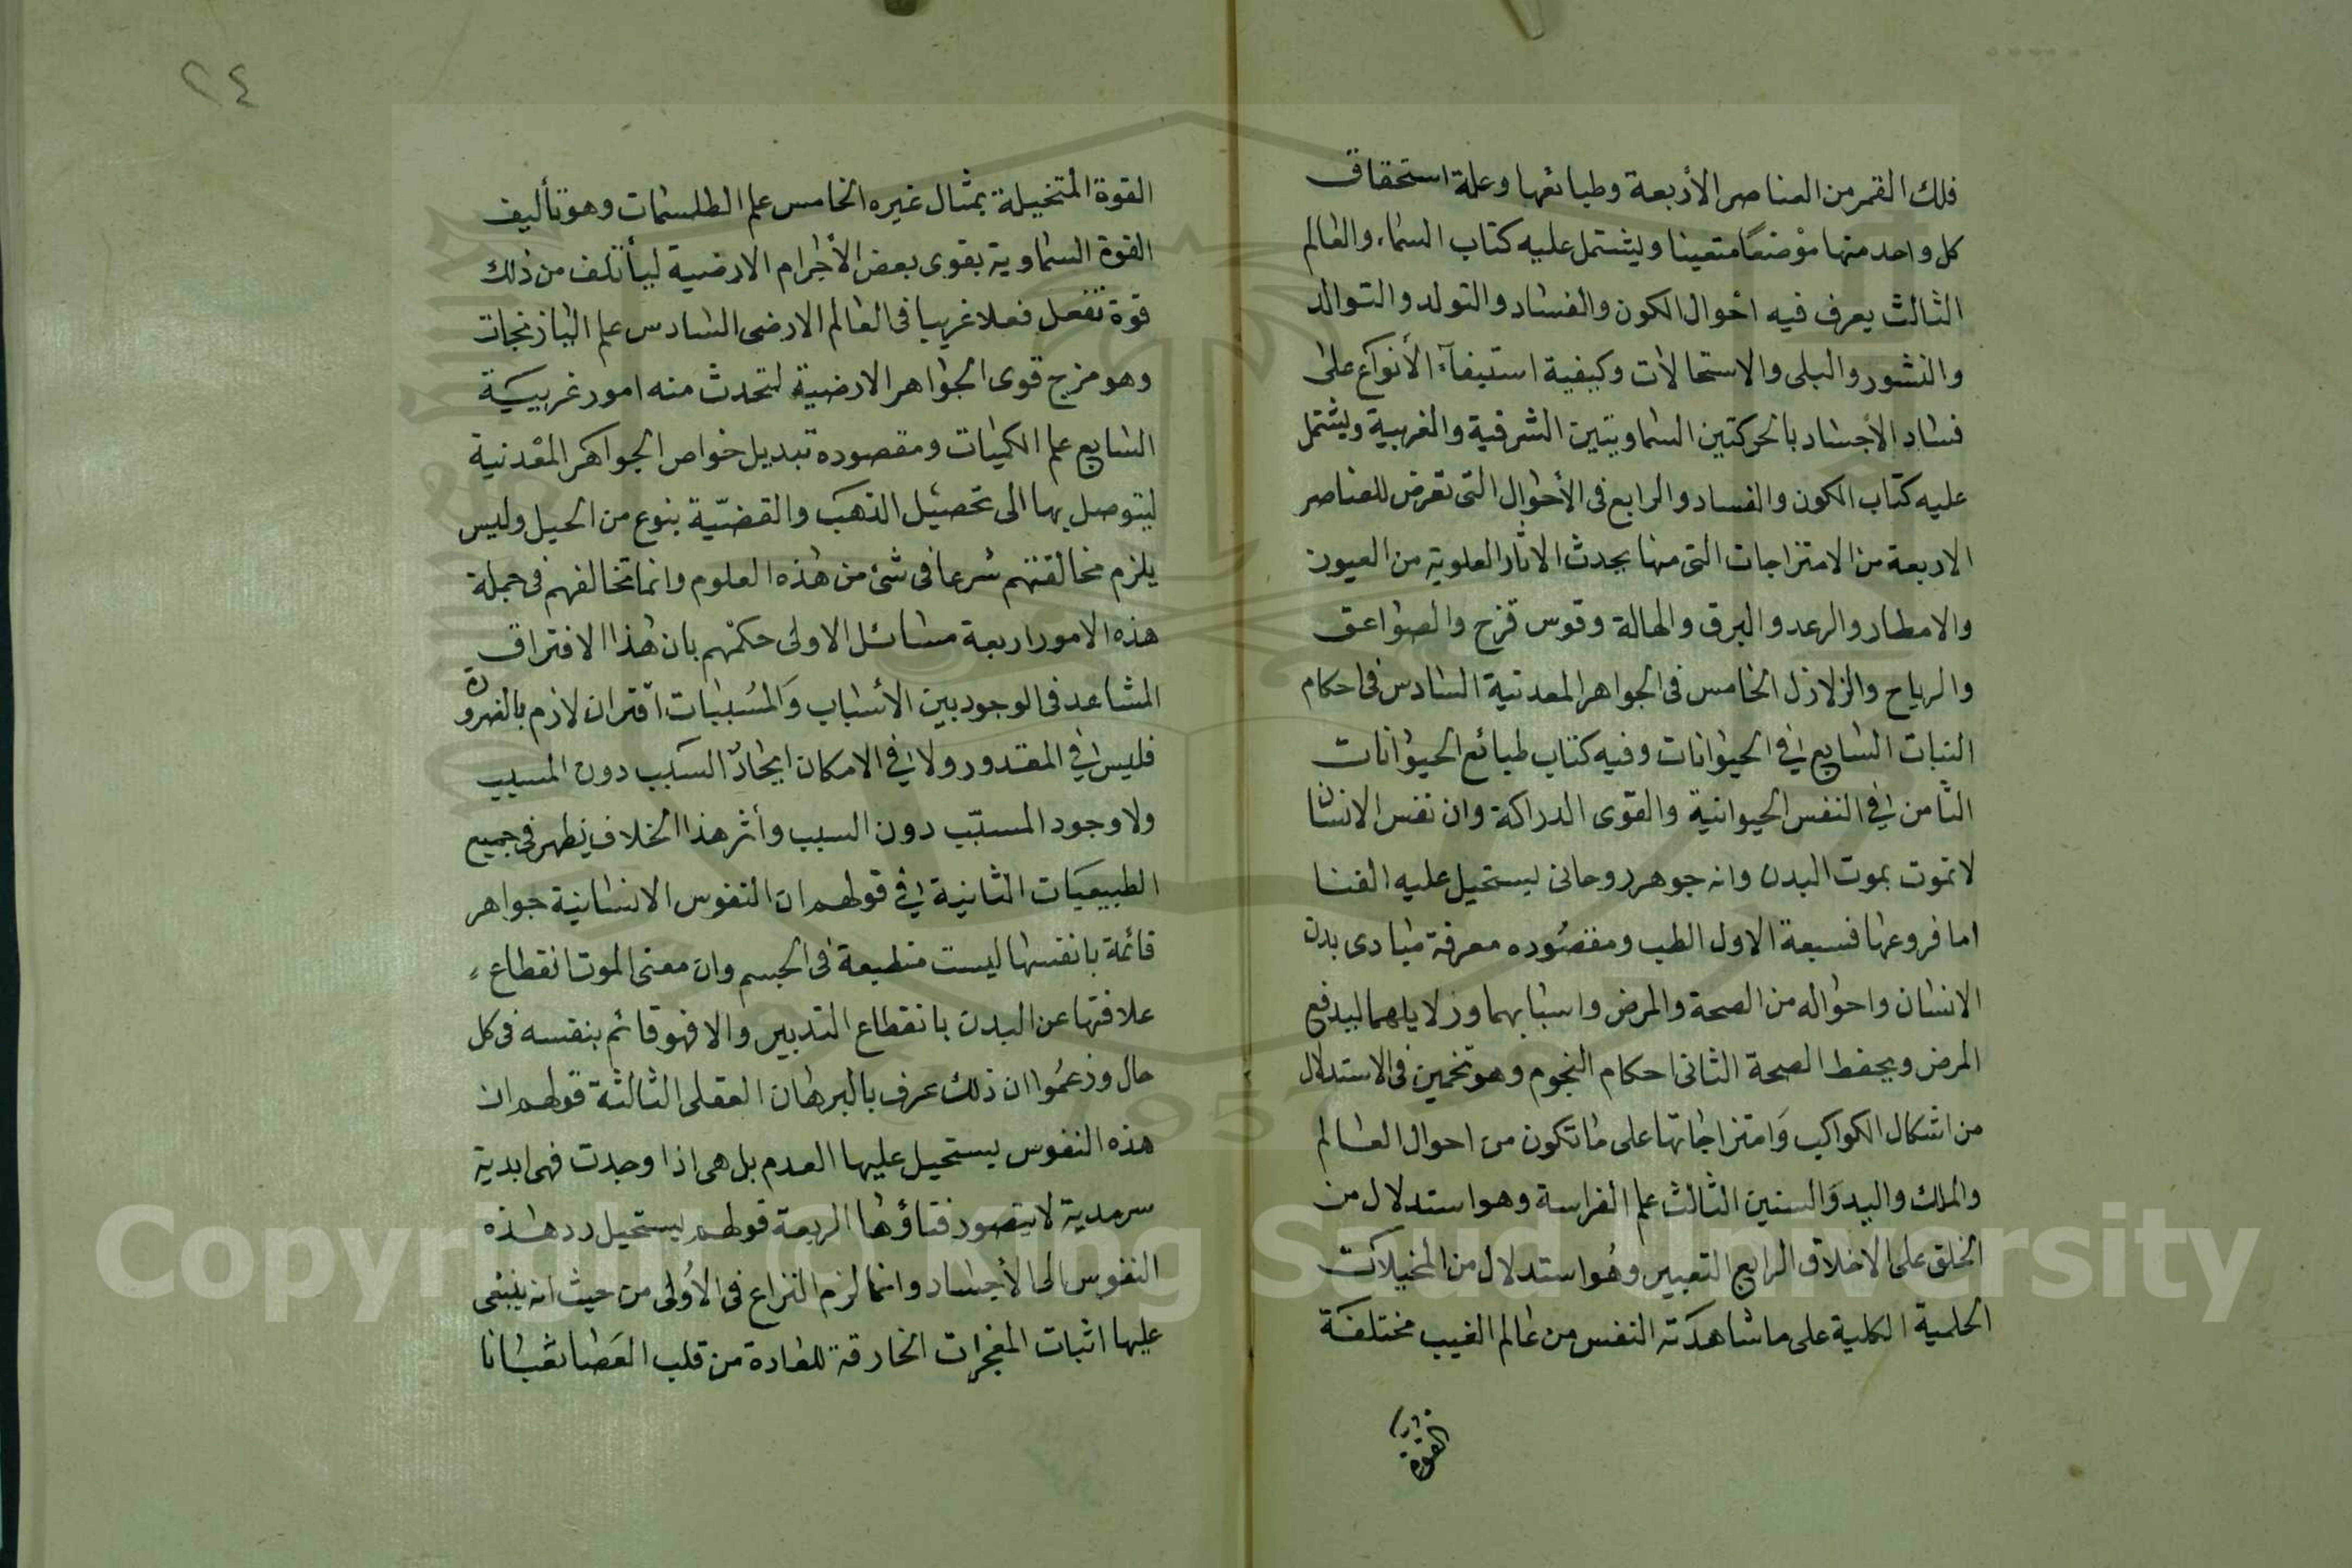 فلك القمر من العناصر الأربعة وطبائعها وعلة استحقاق
كل واحد منها موضعًا متعينا ويشتمل عليه كتاب السماء والعالم
الثالث يعرف فيه احوال الكون والفساد والتولد والتوالد
والنشور والبلى والاستحالات وكيفية استيفآء الأنواع على
فساد الأجساد بالحركتين السماويتين الشرقية والغربية ويشتمل
عليه كتاب الكون والفساد والرابع في الأحوال التي تعرض للعناصر
الاربعة من الامتزاجات التي منها يحدث الاثار العلوية من العيون
والامطار والرعد والبرق والهالة وقوس قزح والصواعق
والرياح والزلازل الخامس في الجواهر المعدنية السادس في احكام
النبات السابع في الحيوانات وفيه كتاب طبائع الحيوانات
الثامن في النفس الحيوانية والقوى الدراكة وان نفس الانسان
لا تموت بموت البدن وانه جوهر روحاني يستحيل عليه الفنا
اما فروعها فسبعة الاول الطب ومقصوده معرفة مبادى بدن
الانسان واحواله من الصحة والمرض واسبابهما وزلايلهما ليدفع
المرض ويحفظ الصحة الثاني احكام النجوم وهو تخمين في الاستدلال
من اشكال الكواكب وَامتزاجاتها على ما تكون من احوال العالم
والملك والبيد وَالسنين الثالث علم الفراسة وهو استدلال من
الخلق على الاخلاق الرابع التعبير وهُو استدلال من المخيلات
الحلمية الكلية على ما شاهدته النفس من عالم الغيب مختلفة
القوة
٢٤
القوة المتخيلة بمثال غيره الخامس علم الطلسمات وهو تأليف
القوة السماوية بقوى بعض الأجرام الارضية ليأتلف من ذلك
قوة تفعل فعلا غريبا في العالم الارضى السادس علم البازنجات
وهو مزج قوى الجواهر الارضية لتحدث منه امور غريبية
السابع علم الكميات ومقصوده تبديل خواص الجواهر المعْدنية
ليتوصل بها الى تحصيل الذهب والقضّية بنوع من الحيل وليس
يلزم مخالفتهم شرعا في شئ من هذه العلوم وانما تخالفهم في جملة
هذه الامور اربعة مسائل الاولى حكمْهم بان هذا الافتراق
المشاهد في الوجود بين الأسباب وَالمسُببات اقتران لازم بالضرورة
فليس في المقدور ولا في الامكان ايجادُ السبب دون المسبب
ولا وجود المسبّب دون السبب وأثر هذا الخلاف يظهر في جميع
الطبيعيَات الثانية في قولهم ان النفوس الانسانية جواهر
قائمة بانفسها ليست منطبعة في الجسم وان معنى الموت انقطاع
علاقتها عن البدن بانقطاع التدبير والا فهو قائم بنفسه في كل
حال وزعمُوا ان ذلك عرف بالبرهان العقلى الثالثة قولهم ان
هذه النفوس يستحيل عليها العدم بل هي اذا وجدت فهى ابدية
سرمدية لا يتصور فناؤها الربعة قولهم يستحيل رد هذه
النفوس الى الأجساد وانما لزم النزاع في الأولى من حيث انه ينبغى
عليها اثبات المعجزات الخارقة للعادة من قلب العَصا ثعبانا
Copyright © King Saud University
1957